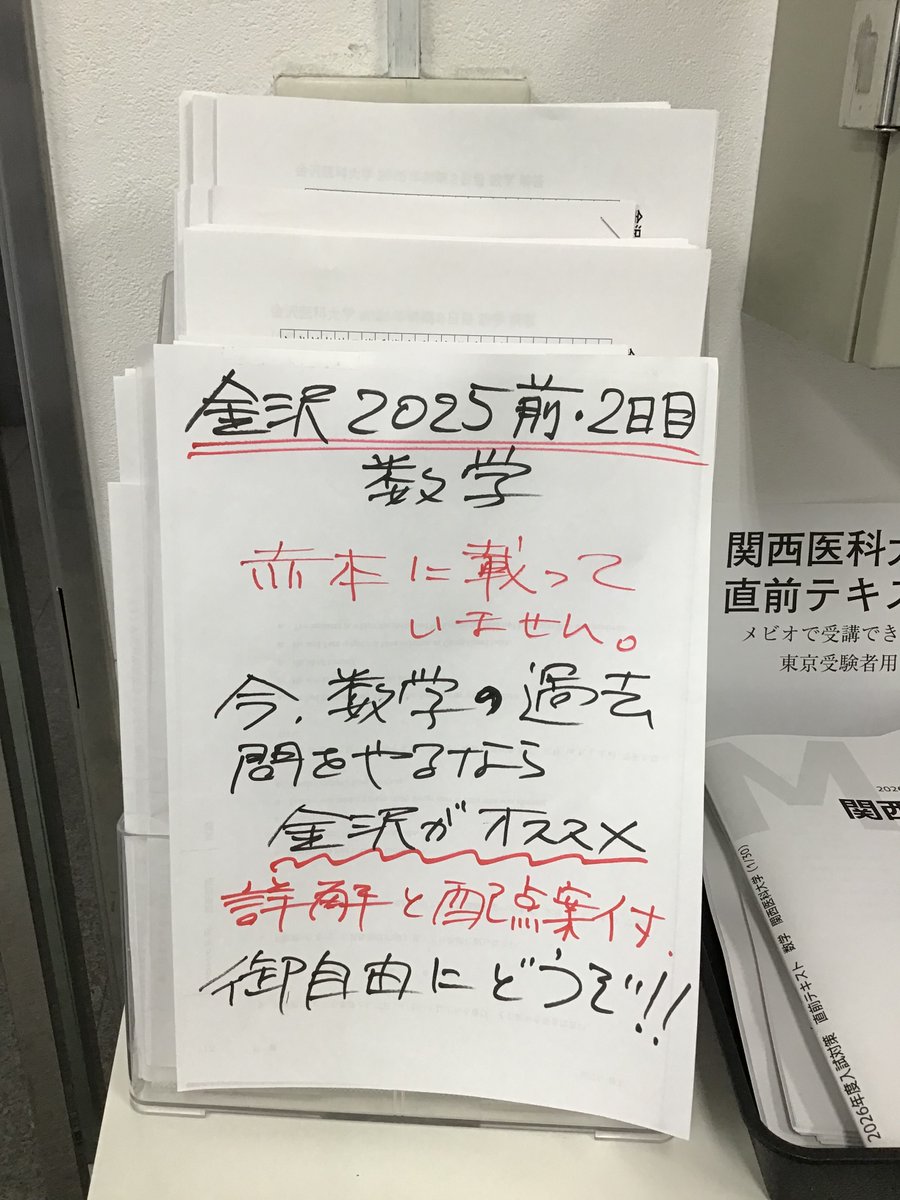 金沢2025前・2日目
数学
赤本に載って
いません。
今、数学の過去
問をやるなら
金沢がオススメ
詳解と配点案付.
御自由にどうぞ!!
関西医科大
直前テキス
メビオで受講でき
東京受験者用
関西
2026年度入試対策 直前テキスト 数学 関西医科大学 (1/30)